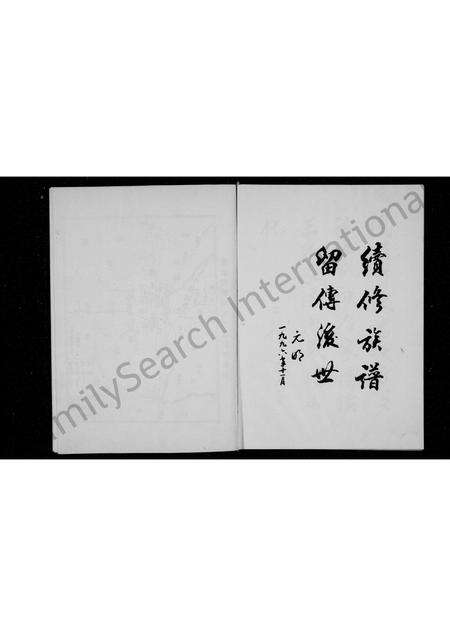 續修族譜
留傳後世
元明
一九九六年十一月
FamilySearch International